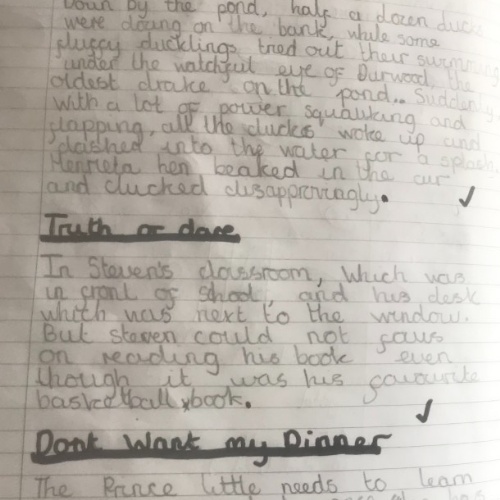 Down by the pond, half a dozen duck
were dozing on the bank, while some
fluffy ducklings tried out their swimming
under the watchful eye of Durwood, the
oldest drake on the pond.. Suddenly
with a lot of power squawking and
flapping, all the ducks woke up and
dashed into the water for a splash.
Henrieta hen beaked in the air
and clucked disapprovingly.
Truth or dare
In Steven's classroom, Which was
in front of School, and his desk
which was next to the window.
But Steven could not
on reading his book even
though it was his favourite
basketball book.
Dont Want my Dinner
The Prince little needs to learn